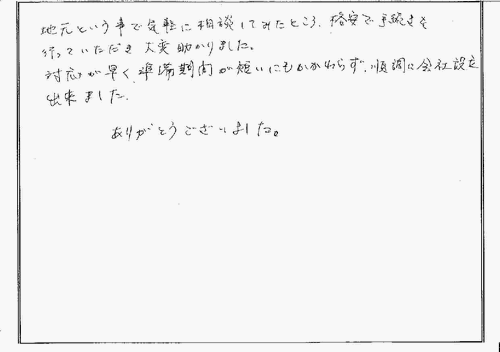 地元という事で気軽に相談してみたところ、格安で手続きを
行っていただき大変助かりました。
対応が早く、準備期間が短いにもかかわらず、順調に会社設立
出来ました。
ありがとうございました。